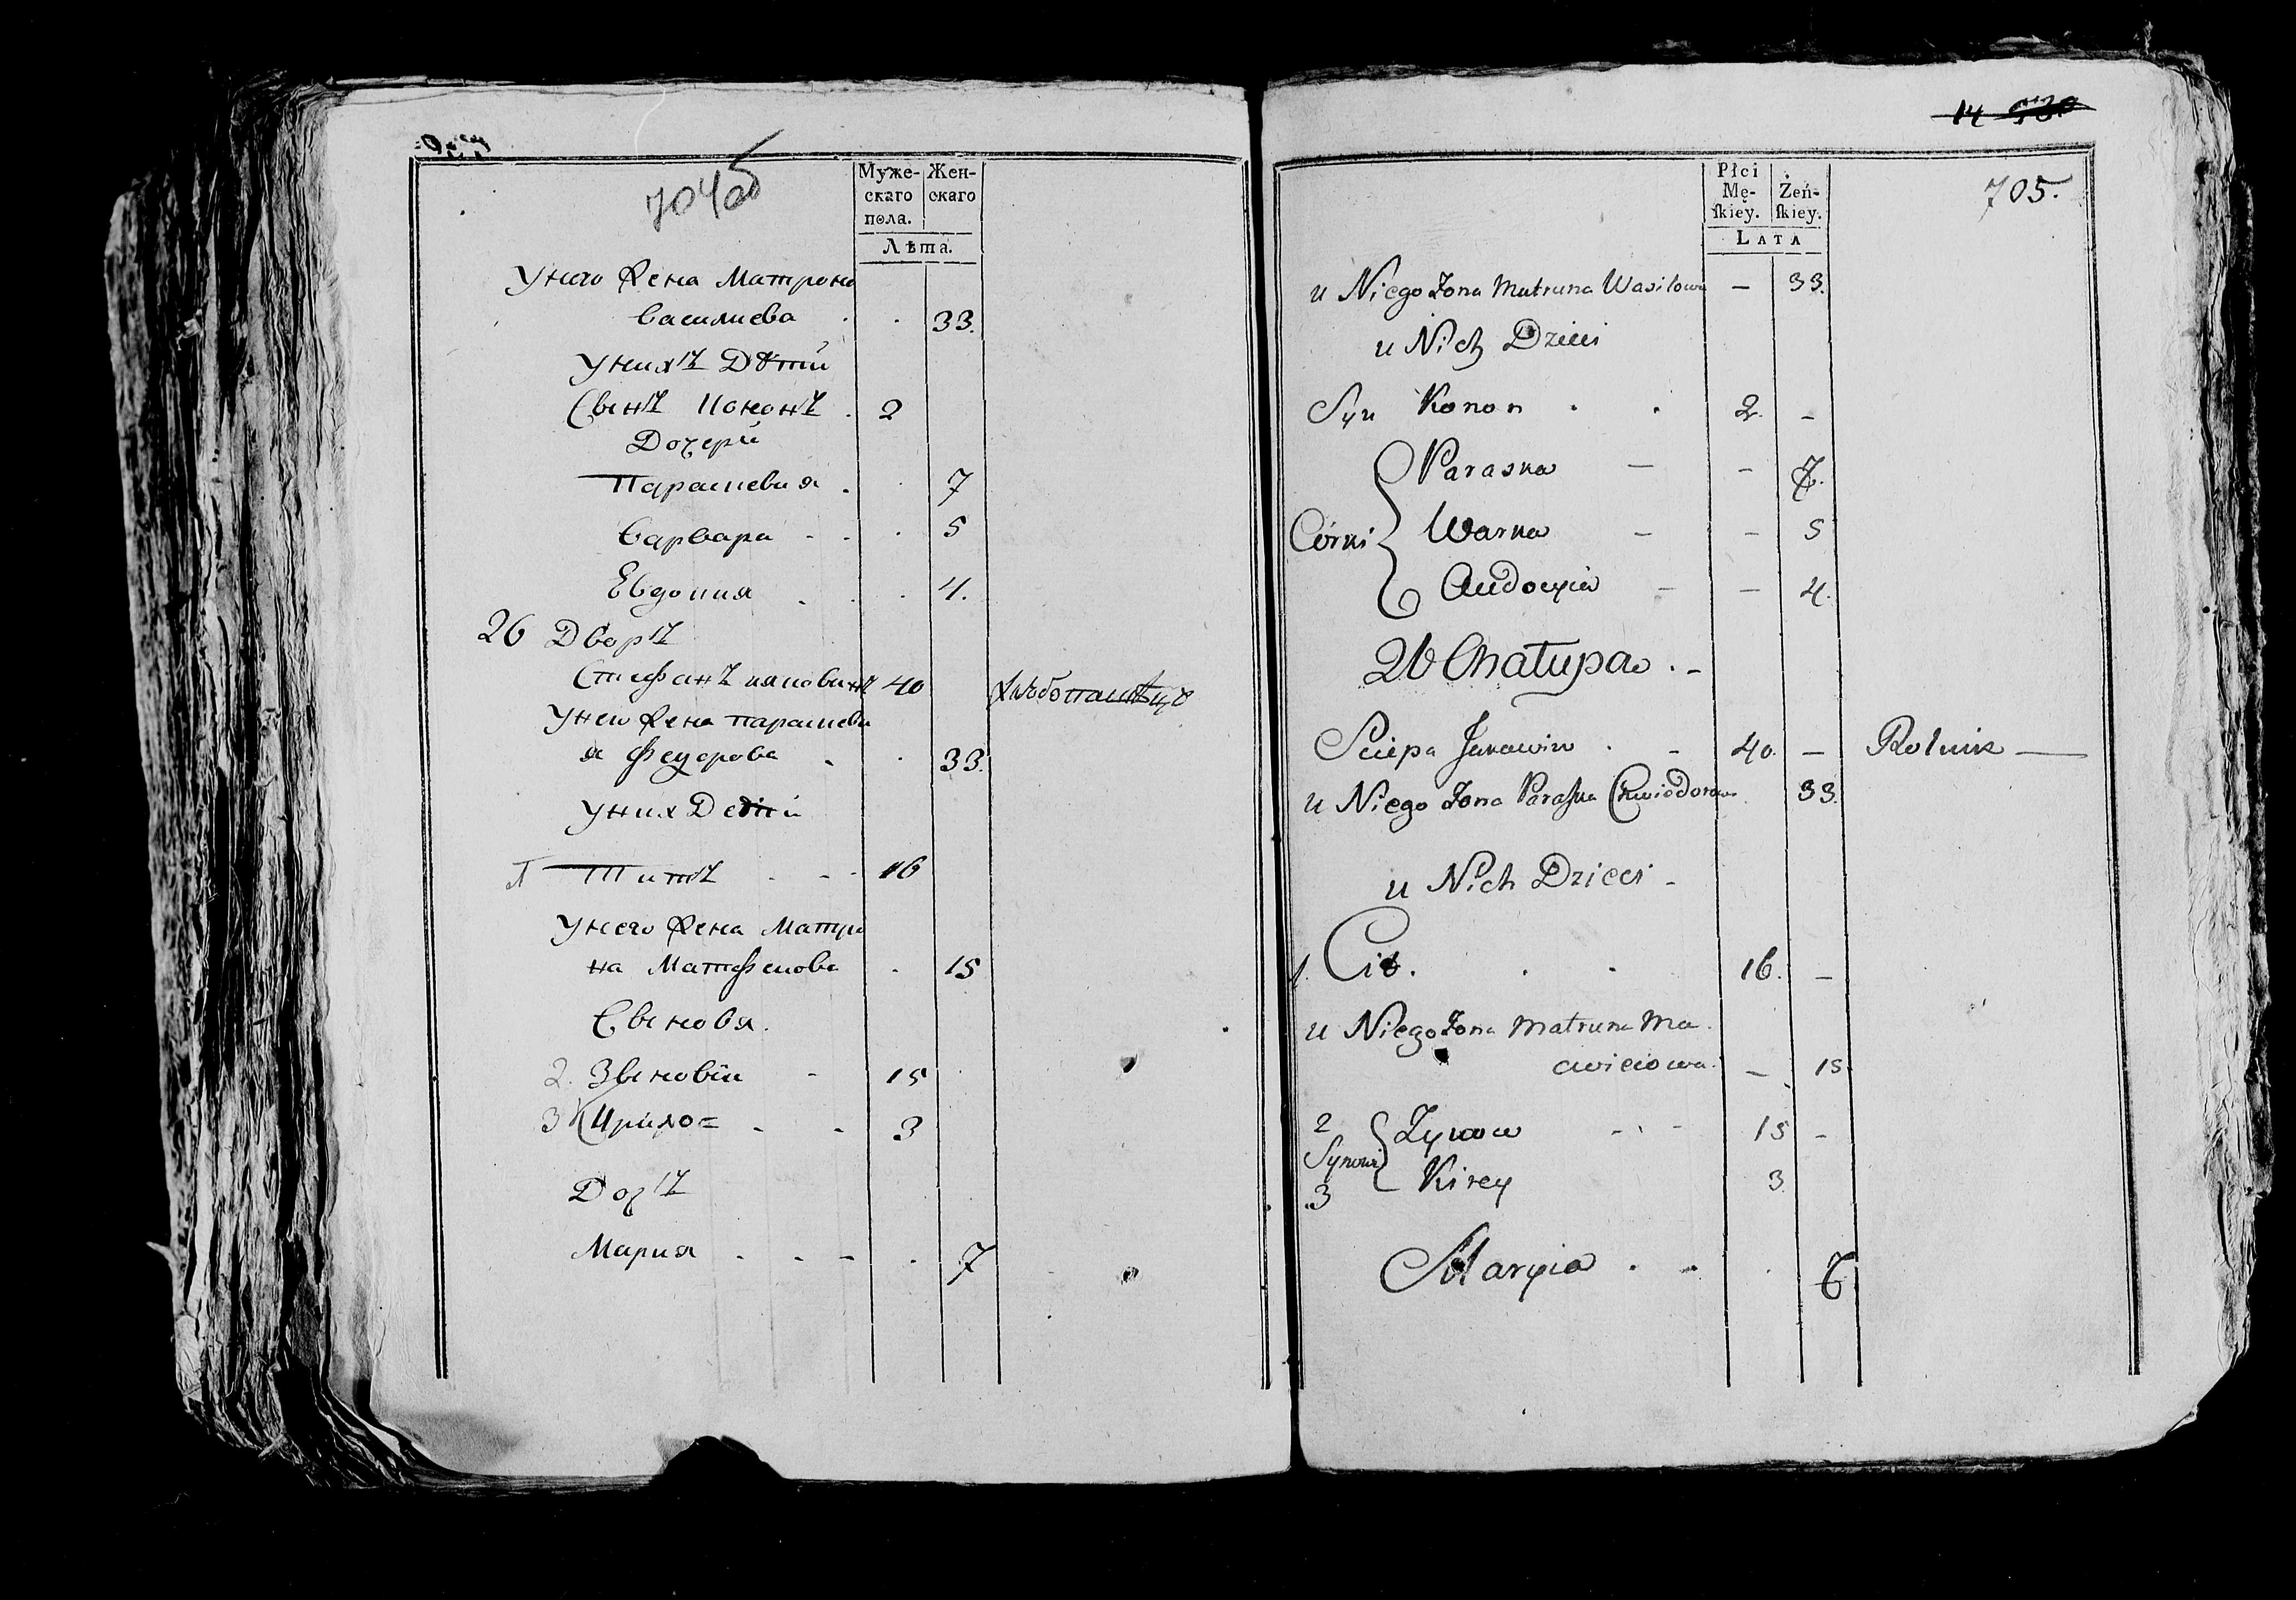 704об
Муже-
скаго
пола.
Жен-
скаго
Лѣта.
Унего Жена Матрона
василиева . . 33.
Унихъ Дѣтй
Свинъ Кононъ . 2
Дочери
Парасковия . . 7
Варвара - - . 5
Евдокия . . . 4.
26 Дворъ
Стефанъ 40
Унего Жена параскеви
я Федорова . . 33.
Уних Детй
Титъ - - - 16
Унего Жена Матро
на Матфеиова . 15
2. Зеновïи - 15
3 - - 3
Дочъ
Мария - - - . 7
14
705.
Płci
Mę-
ſkiey.
Żeń-
ſkiey.
LATA
u Niego Zona Matruna Wasilowa — 33.
u Nich Dzieci
Syn Konon . . 2. -
Córki
Paraska — - 7.
Warka — — 5
Audocyia — — 4.
26 Chałupa . -
Sciepa Jakowiw . - 40. — Rolnik —
u Niego Zona Paraska Chwiodorowa 33.
u Nich Dzieci -
1. Cit. . . 16. -
u Niego Zona Matruna Ma
cwieiowa — 15
2 Zynow - - - 15 -
Synowi
3 Kirey 3
Maryia . . . 7